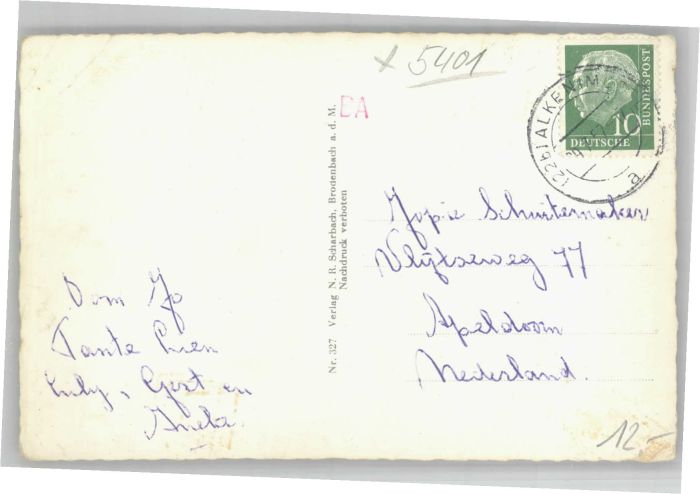 x 5401
BA
10
DEUTSCHE
BUNDESPOST
(22b) ALKEN
a
Nr. 327 Verlag N. R. Scharbach, Brodenbach a. d. M.
Nachdruck verboten
Jopie Schuitemaker
Vlijtseweg 77
Apeldoorn
Nederland.
Oom Jo
Tante Lien
Gert en
12,-